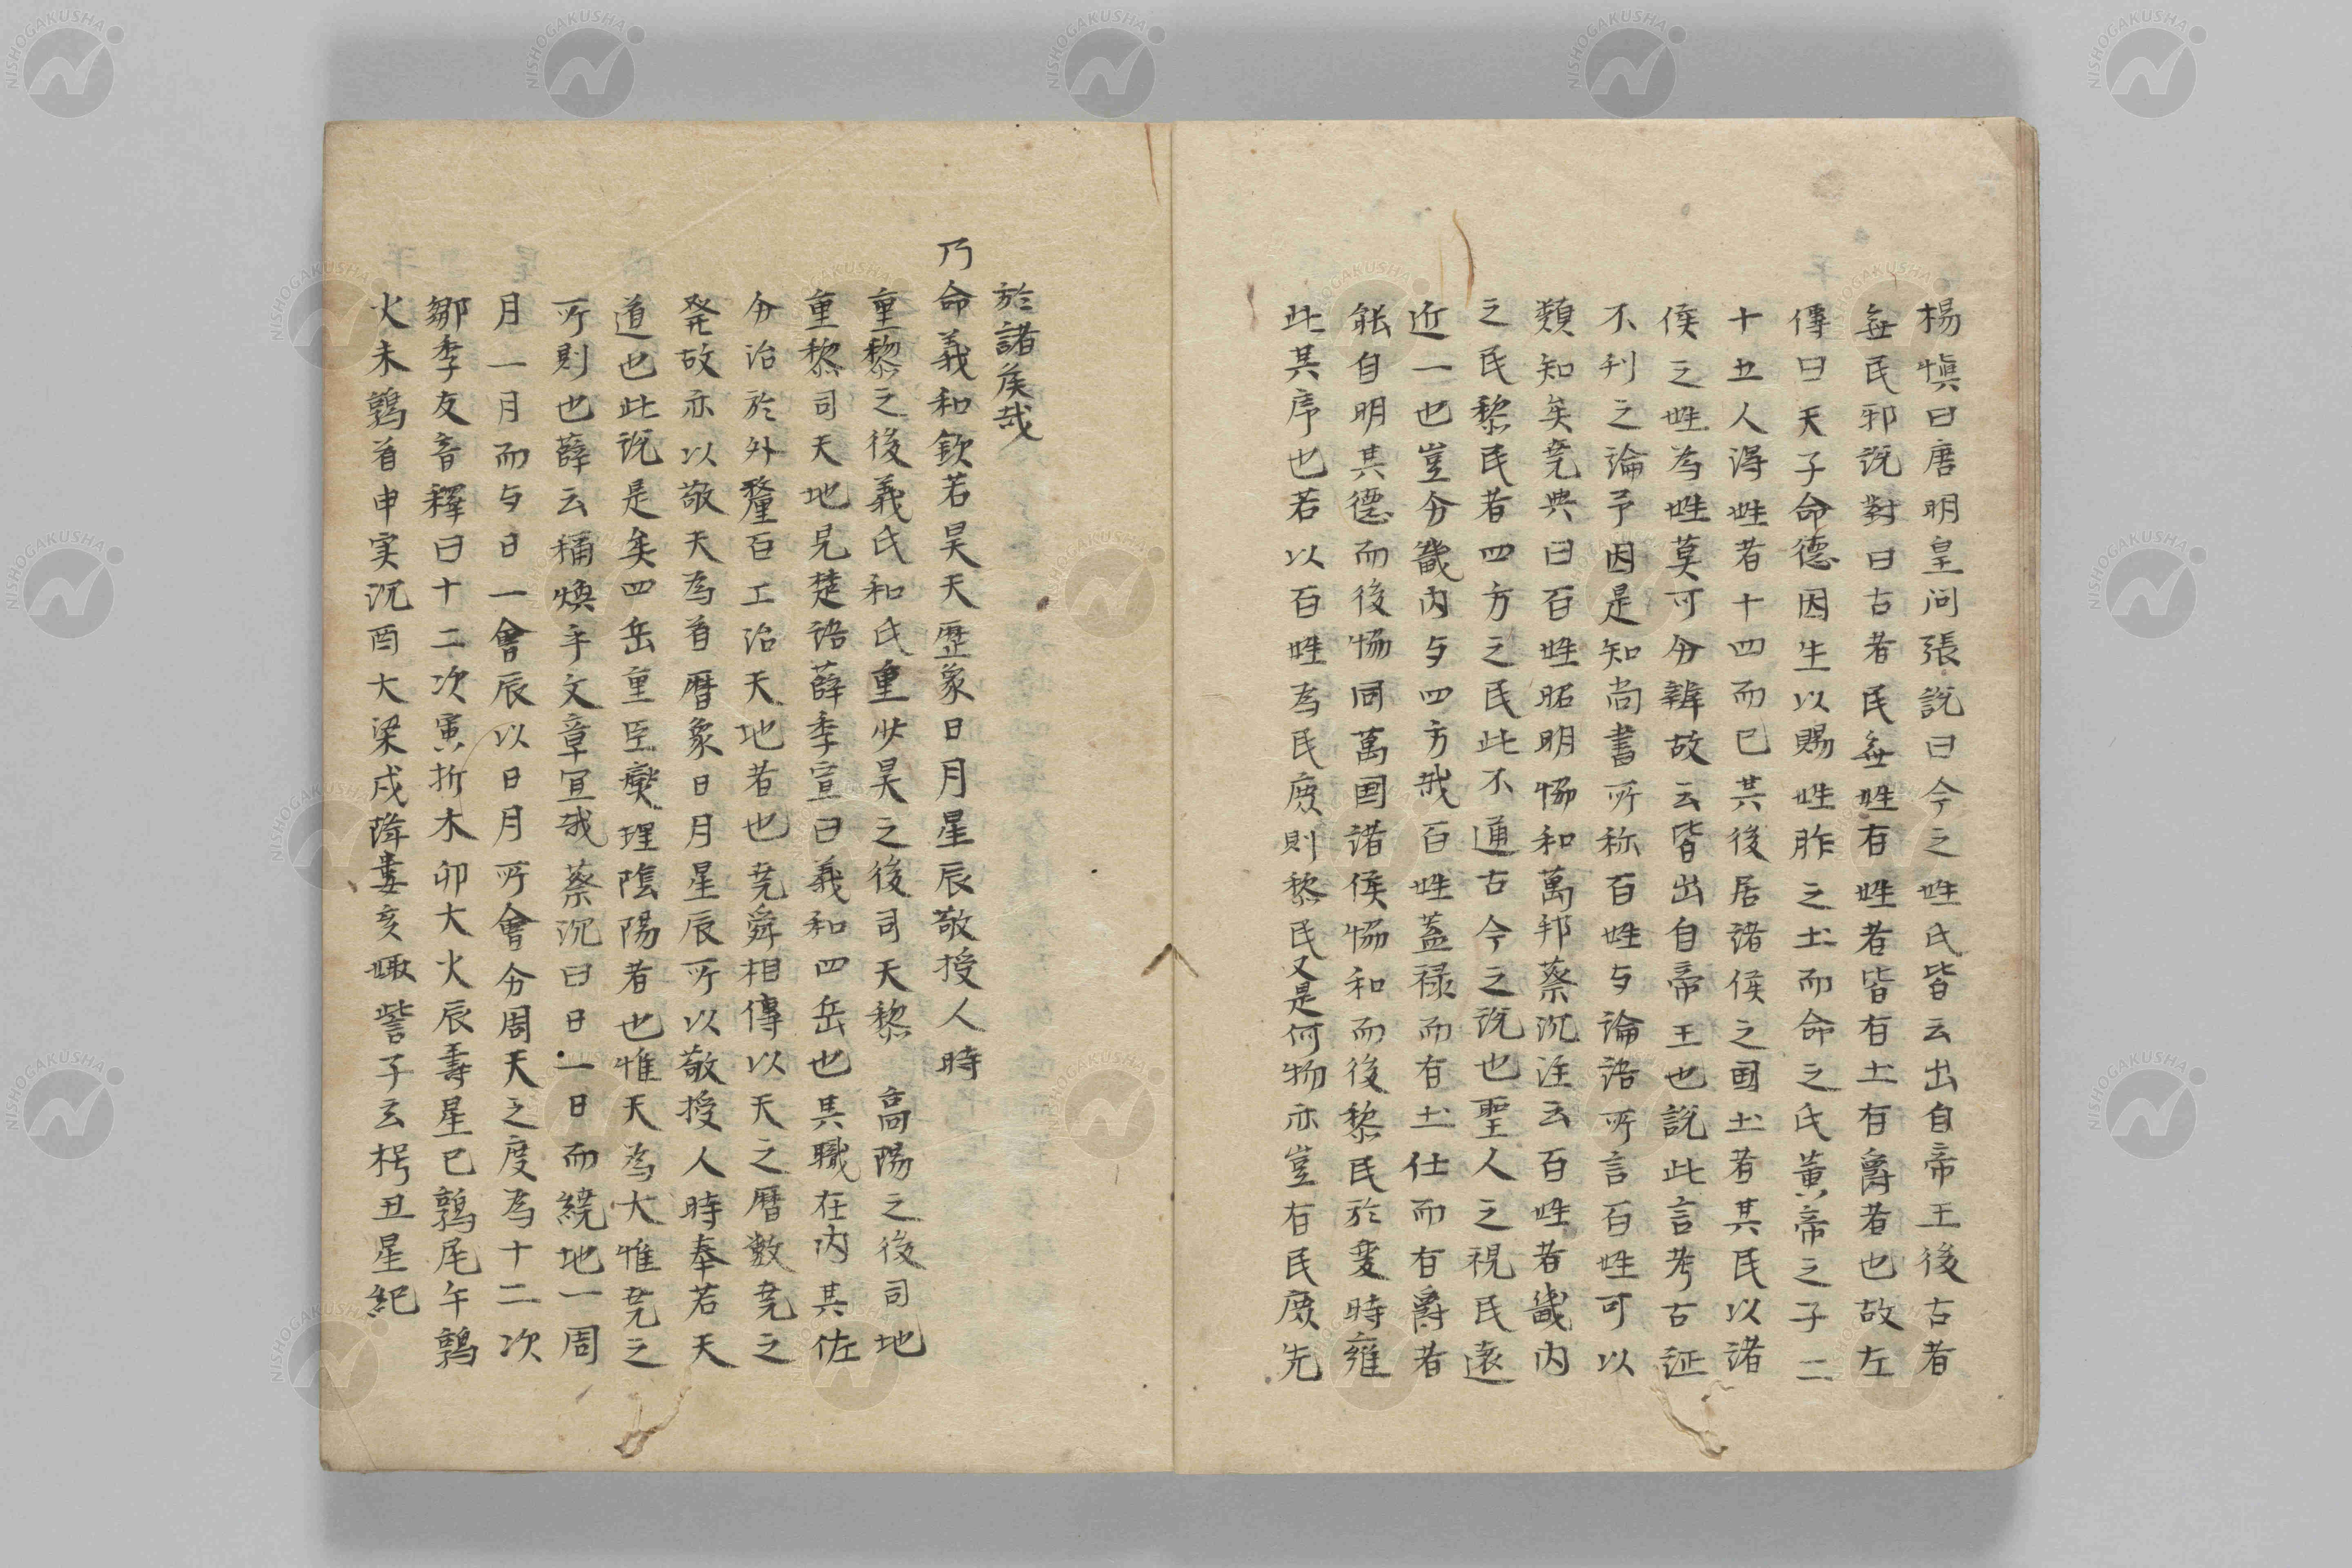 楊慎曰唐明皇问張說曰今之姓氏皆云出自帝王後古者
無民邪説對曰古者民無姓有姓者皆有土有爵者也故左
傳曰天子命德因生以賜姓胙之土而命之氏黄帝之子二
十五人得姓者十四而已其後居諸侯之国土者其民以諸
侯之姓為姓莫可分辨故云皆出自帝王也説此言考古证
不刊之論予因是知尚書所称百姓与論語所言百姓可以
類知矣尭典曰百姓昭明恊和萬邦蔡沉注云百姓者畿内
之民黎民者四方之民此不通古今之説也聖人之視民遠
近一也豈分畿内与四方哉百姓蓋禄而有土仕而有爵者
能自明其德而後恊同萬国諸侯恊和而後黎民於変時雍
此其序也若以百姓為民庶則黎民又是何物亦豈有民庶先
於諸矦哉
乃命義和欽若昊天歴象日月星辰敬授人時
重黎之後義氏和氏重少昊之後司天黎 高陽之後司地
重黎司天地見楚語薛季宣曰義和四岳也其職在内其佐
分治於外釐百工治天地者也尭舜相傳以天之暦数尭之
発故亦以敬天為首暦象日月星辰所以敬授人時奉若天
道也此説是矣四岳重臣燮理陰陽者也惟天為大惟尭之
所則也薛云稱煥乎文章宜哉蔡沉曰日一日而繞地一周
月一月而与日一會辰以日月所會分周天之度為十二次
鄒季友音釋曰十二次寅析木卯大火辰壽星巳鶉尾午鶉
火未鶉首申实沉酉大梁戌降婁亥娵訾子玄枵丑星紀
NISHOGAKUSHA